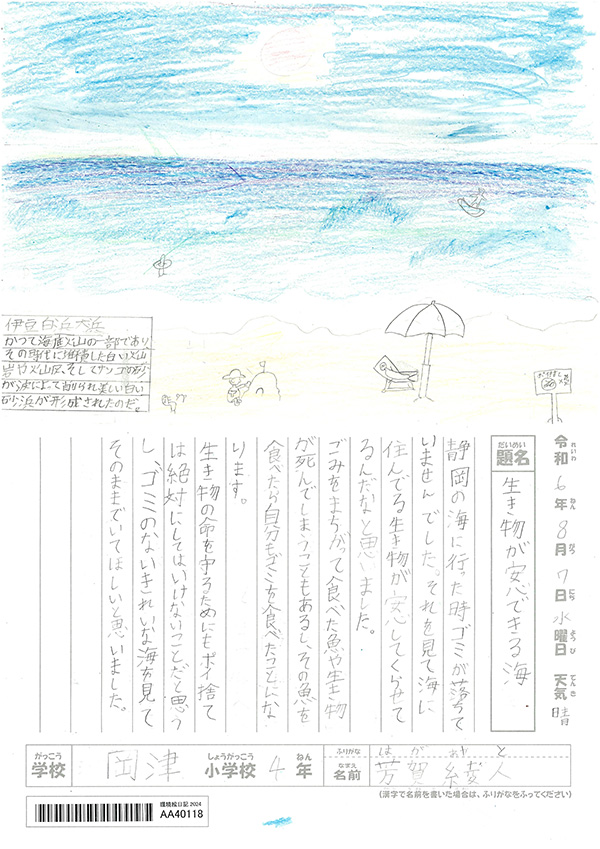 伊豆白浜大浜
かつて海底火山の一部であり、
その時代に堆積した白い火山
岩や火山灰、そしてサンゴの砂
が波によって削られ美しい白い
砂浜が形成されたのだ。
令和6年8月7日水曜日 天気 晴
れいわ ねん がつ にち ようび てんき
だいめい
題名 生き物が安心できる海
静岡の海に行った時ゴミが落ちて
いませんでした。それを見て海に
住んでる生き物が安心してくらせて
るんだなと思いました。
ごみをまちがって食べた魚や生き物
が死んでしまうこともあるし、その魚を
食べたら自分もゴミを食べたことにな
ります。
生き物の命を守るためにもポイ捨て
は絶対にしてはいけないことだと思う
し、ゴミのないきれいな海を見て
そのままでいてほしいと思いました。
がっこう しょうがっこう ねん ふりがな は が あや と
学校 岡津 小学校 4年 なまえ 名前 芳賀綾人
(漢字で名前を書いた場合は、ふりがなをふってください)
環境絵日記 2024
AA40118